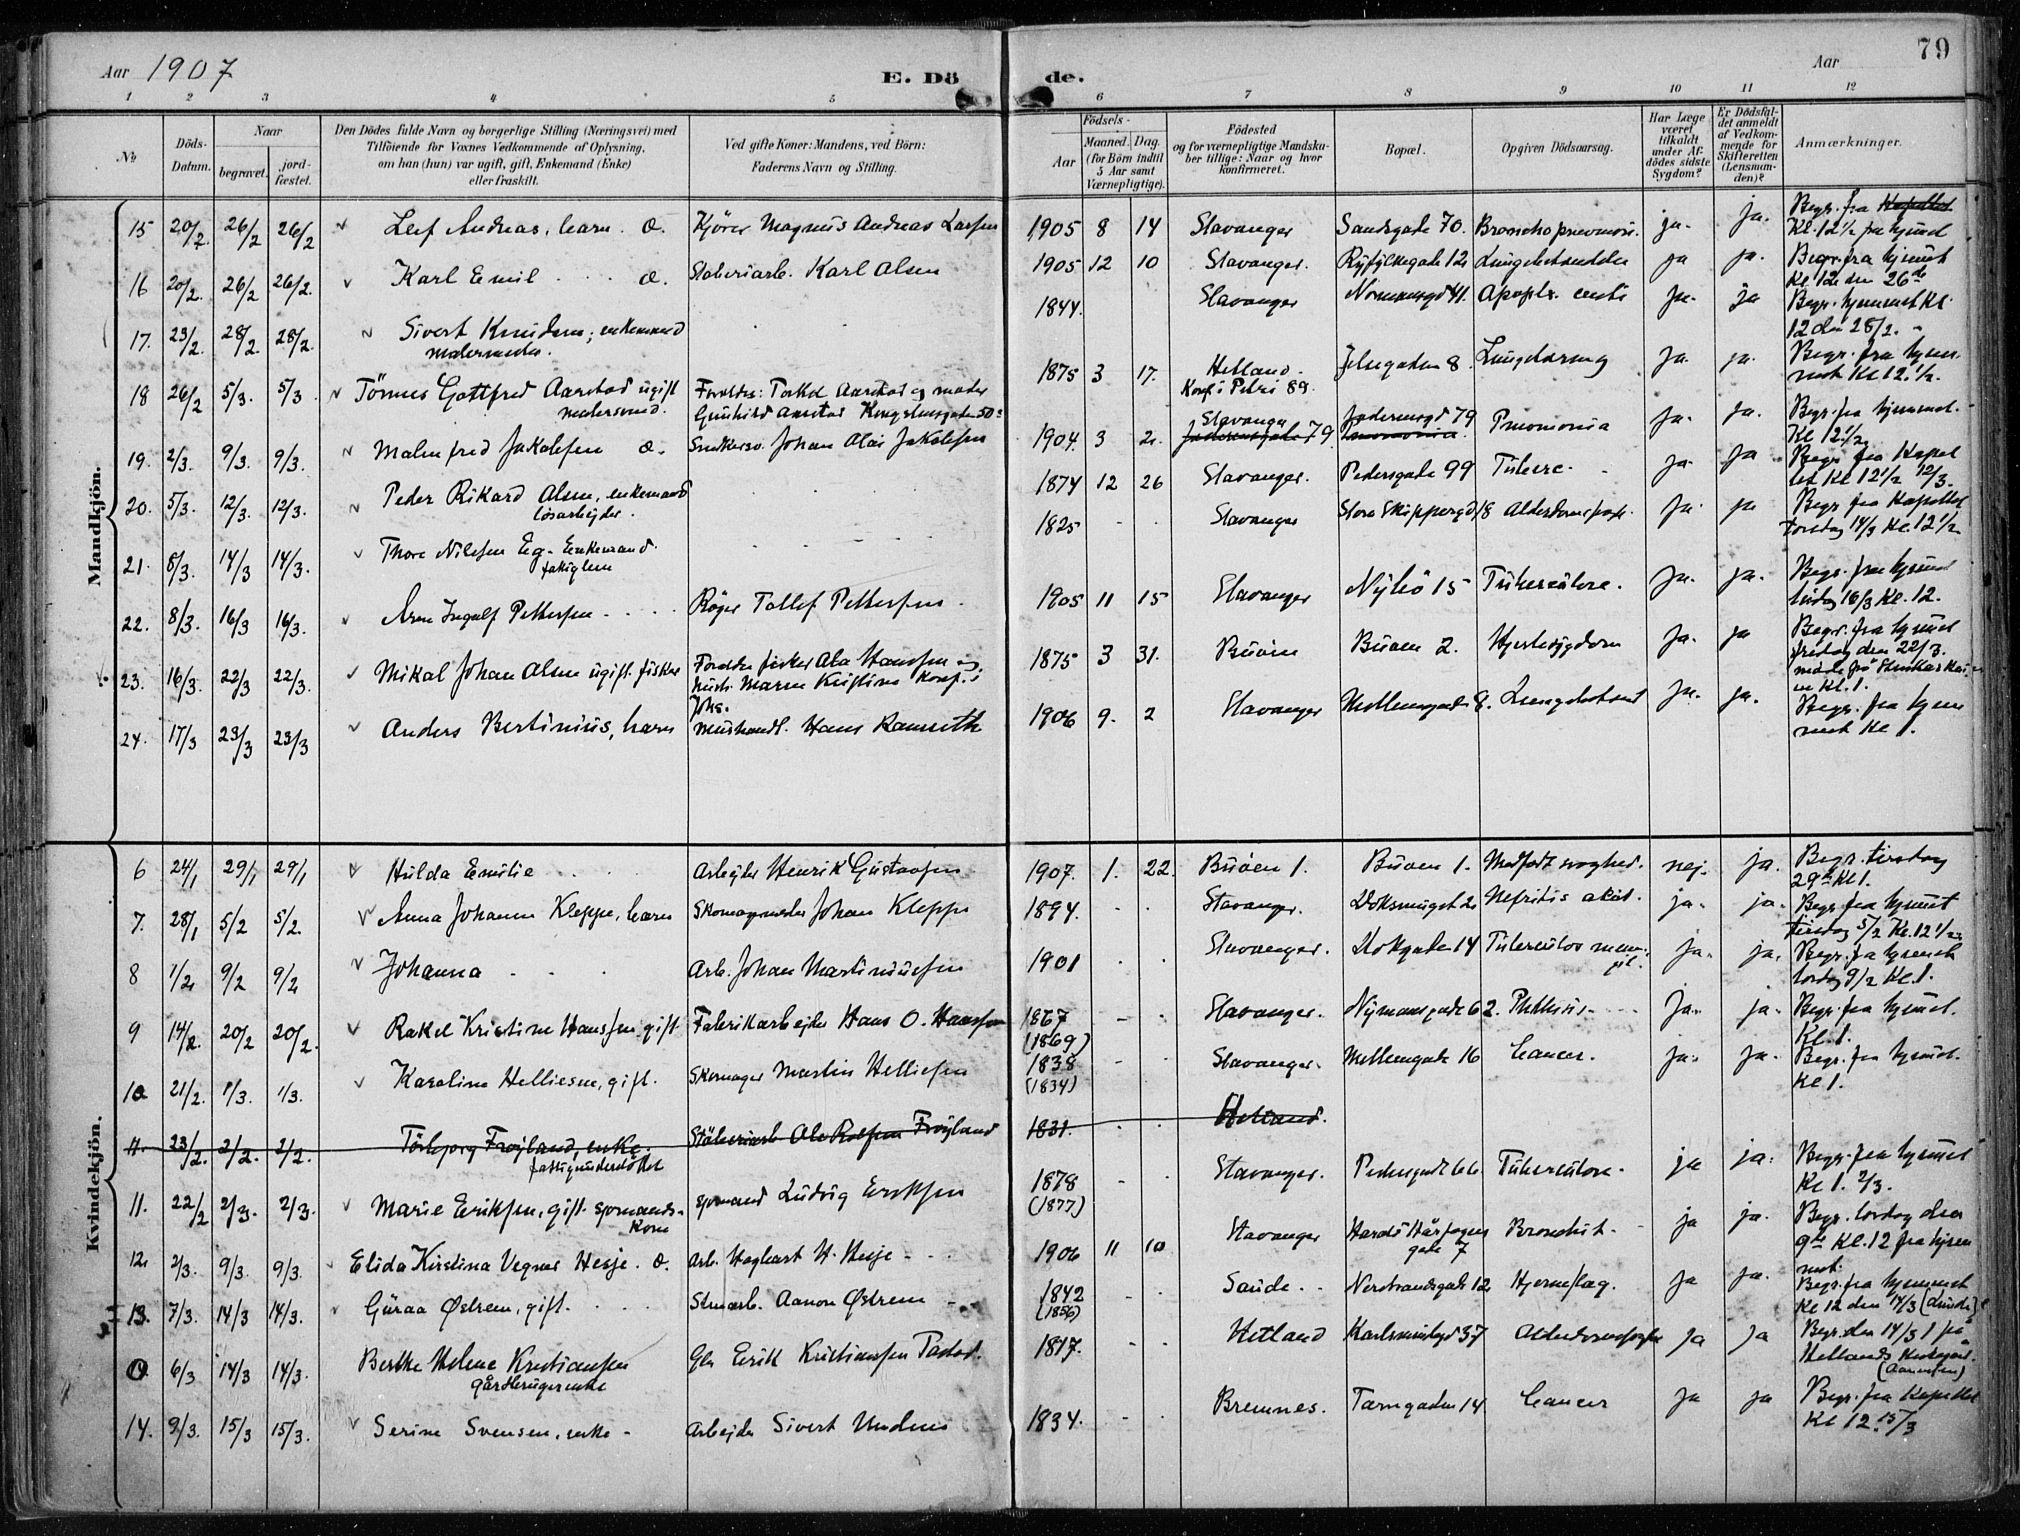 79
Aar 1907
E. Döde.
Aar
1 2 3 4 5 6 7 8 9 10 11 12
No
Döds-Datum.
Naar
begravet. jordfæstet.
Den Dödes fulde Navn og borgerlige Stilling (Næringsvei) med
Tilföiende for Voxnes Vedkommende af Oplysning,
om han (hun) var ugift, gift, Enkemand (Enke)
eller fraskilt.
Ved gifte Koner: Mandens, ved Börn:
Faderens Navn og Stilling.
Födsels-
Aar Maaned. Dag.
(for Börn indtil
5 Aar samt
Værnepligtige).
Födested
og for værnepligtige Mandska-
ber tillige: Naar og hvor
konfirmeret.
Bopæl.
Opgiven Dödsaarsag.
Har Læge
været
tilkaldt
under Af-
dödes sidste
Sygdom?
Er Dödsfal-
det anmeldt
af Vedkom-
mende for
Skifteretten
(Lensman-
den)?
Anmærkninger.
Mandkjön.
15 20/2. 26/2 26/2 Leif Andreas, barn. Kjører Magnus Andreas Larsen 1905 8 14 Stavanger Sandsgade 70. Bronchopneumoni. ja. ja. Begr. fra Kapellet Kl. 12 1/2 fra hjemmet
16 20/2. 26/2 26/2. Karl Emil Støberiarb. Karl Olsen 1905 12 10 Stavanger. Ryfylkegade 12 ja ja. Begr. fra hjemmet Kl. 12 den 26de
17. 23/2. 28/2. 28/2. Sivert Knudsen, enkemand malermester. 1844. Stavanger ja. ja Begr. hjemmet Kl. 12 den 28/2.
18 26/2 5/3. 5/3. Tönnes Gottfred Aarstad ugift malersvend. Forældre: Torkel Aarstad og moder Gunhild Aarstad Kongsteensgaden 50 1875 3 17. Hetland. Konf. i Petri 89. Jelsegaden 8 ja. ja. Begr. fra hjemmet Kl. 12. 1/2.
19. 2/3. 9/3. 9/3. Malmfred Jakobsen Johan Jakobsen 1904 3 2. Stavanger Jadereusgd 79 Pneumonia ja. ja. Begr. fra hjemmet. Kl. 12 1/2
20. 5/3. 12/3. 12/3. Peder Rikard Olsen, enkemand løsarbejder. 1874 12 26 Stavanger. Pedersgade 99 ja. ja Begr. fra Kapellet Kl 12 1/2 12/3.
21. 8/3. 14/3 14/3. Thore Nilssen Eg. Enkemand. fattiglem 1825 Stavanger Store Skippergd 18 ja. ja Begr. fra Kapellet torsdag 14/3 Kl. 12 1/2
22. 8/3. 16/3 16/3. Arne Ingolf Pettersen Røger Tollef Pettersen 1905 11 15 Stavanger Nybö 15 Tuberculose. ja. ja. Begr. fra hjemmet lördag 16/3 Kl. 12.
23. 16/3. 22/3 22/3. Mikal Johan Olsen ugift fisker Forældre fisker Ola Hanssen og hustr. Maren Kristine Konf. i Joha. 1875 3 31. Buöen Buöen 2. Hjertesygdom ja. ja Begr. fra hjemmet fredag den 22/3. Kl. 1.
24. 17/3 23/3 23/3 Anders Bertinius, barn Hans Ramseth 1906 9. 2 Stavanger Møllegade 8. ja. ja. Begr. fra hjemmet Kl 1.
Kvindekjön.
6 24/1 29/1 29/1 Hulda Emilie Arbejder Henrik Gustavsen 1907. 1. 22. Buöen 1. Buöen 1. Medfødt svaghed. nej. ja. Begr. tirsdag 29de Kl 1.
7. 28/1 5/2 5/2. Anna Johanna Kleppe, barn Skomagermester Johan Kleppe 1894. Stavanger. Nefritis akut. ja. ja. Begr. fra hjemmet tirsdag 5/2 Kl. 12 1/2
8 1/2 9/2 9/2 Johanna Arb. Johan Martiniussen 1901 Stavanger. Kokgade 14 ja. ja. Begr. fra hjemmet lördag 9/2 Kl. 1.
9 14/2. 20/2 20/2. Rakel Kristine Hanssen gift. Fabrikarbejder Hans O. Hanssen 1867 (1869) Stavanger. Nymansgade 62. Phthisis. ja. ja. Begr. fra hjemmet. Kl. 1.
10 21/2. 1/3. 1/3. Karoline Helliesen, gift. Skomager Martin Helliesen 1838 (1834) Stavanger. Møllegade 16 Cancer. ja. ja. Begr. fra hjemmet. Kl 1.
11. 23/2. 2/2. 2/2. Torborg Frøyland, enke. fattigunderstöttet Ole Frøyland 1831. Hetland.
11. 22/2 2/3. 2/3. Marie Eriksen, gift. sjømands Kone sjømand Ludvig Eriksen 1878 (1877) Stavanger. Pedersgade 66 Tuberculose. ja ja. Begr. fra hjemmet Kl 1. 2/3.
12. 2/3. 9/3. 9/3. Elida Kirstina Vegner Hesje. Arb. Hagbart H. Hesje 1906 11 10 Stavanger Harald Hårfagres gade 7 Bronchit. ja ja. Begr. lördag den 9de Kl. 12 fra hjemmet.
13. 7/3. 14/3 14/3. Guraa Østrem, gift. Aanon Østrem 1842 (1856) Saude. Nerstrandsgade 12 Hjerneslag. ja ja. Begr. fra hjemmet Kl 12 den 14/3
0 6/3 14/3 14/3. Berthe Helene Kristiansen gårdbrugerenke Gbr Eirik Kristiansen 1817. Hetland 37 ja ja Begr. den 14/3 1 på Hetlands Kirkegård.
14. 9/3. 15/3 15/3. Serine Svensen, enke. Arbejder Sivert 1834. Bremnes. Tarngaden 14 Cancer ja ja Begr. fra Kapellet Kl 12 15/3